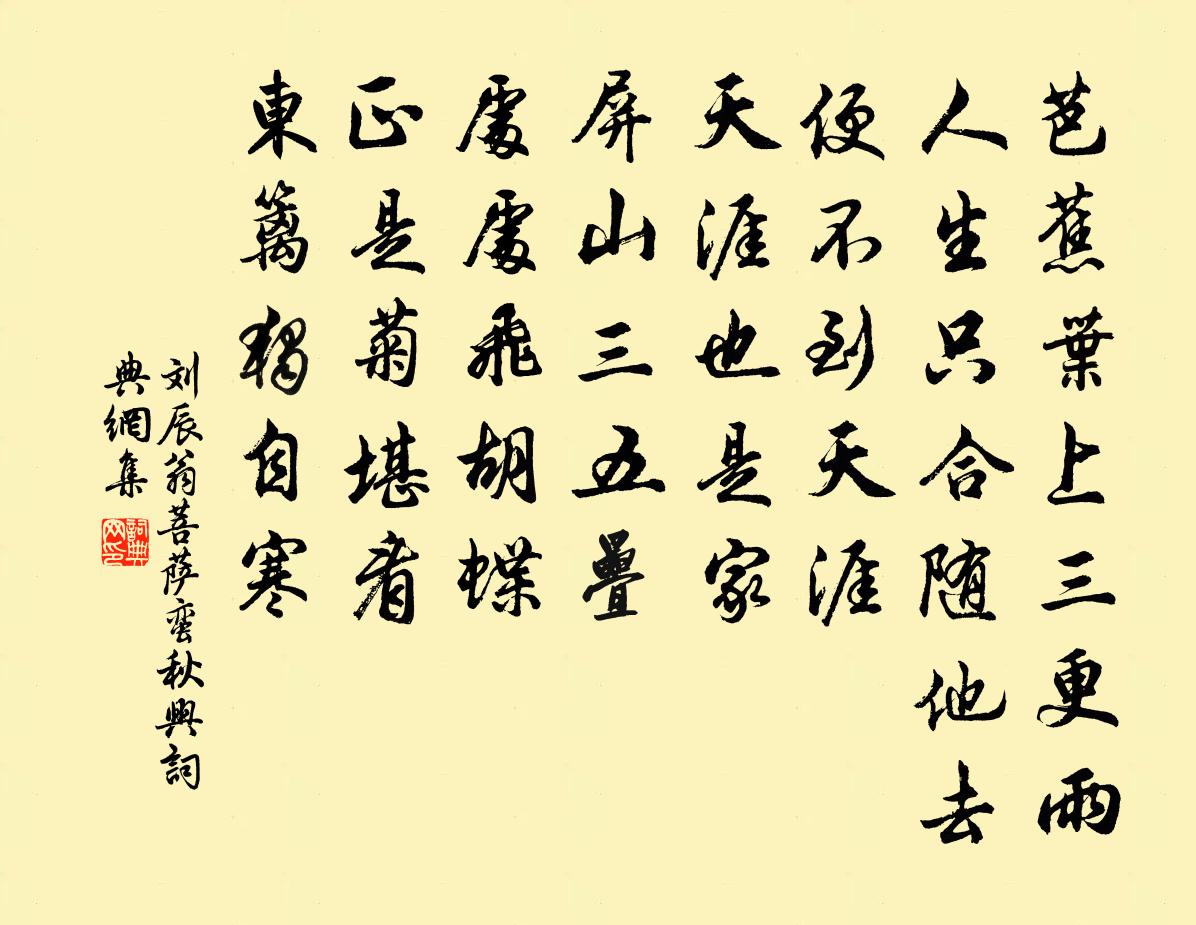 芭蕉葉上三更雨
人生只合随他去
便不到天涯
天涯也是家
屏山三五疊
處處飛胡蝶
正是菊堪看
東籬獨自寒
刘辰翁菩萨蛮秋興詞
典網集
詞典網印